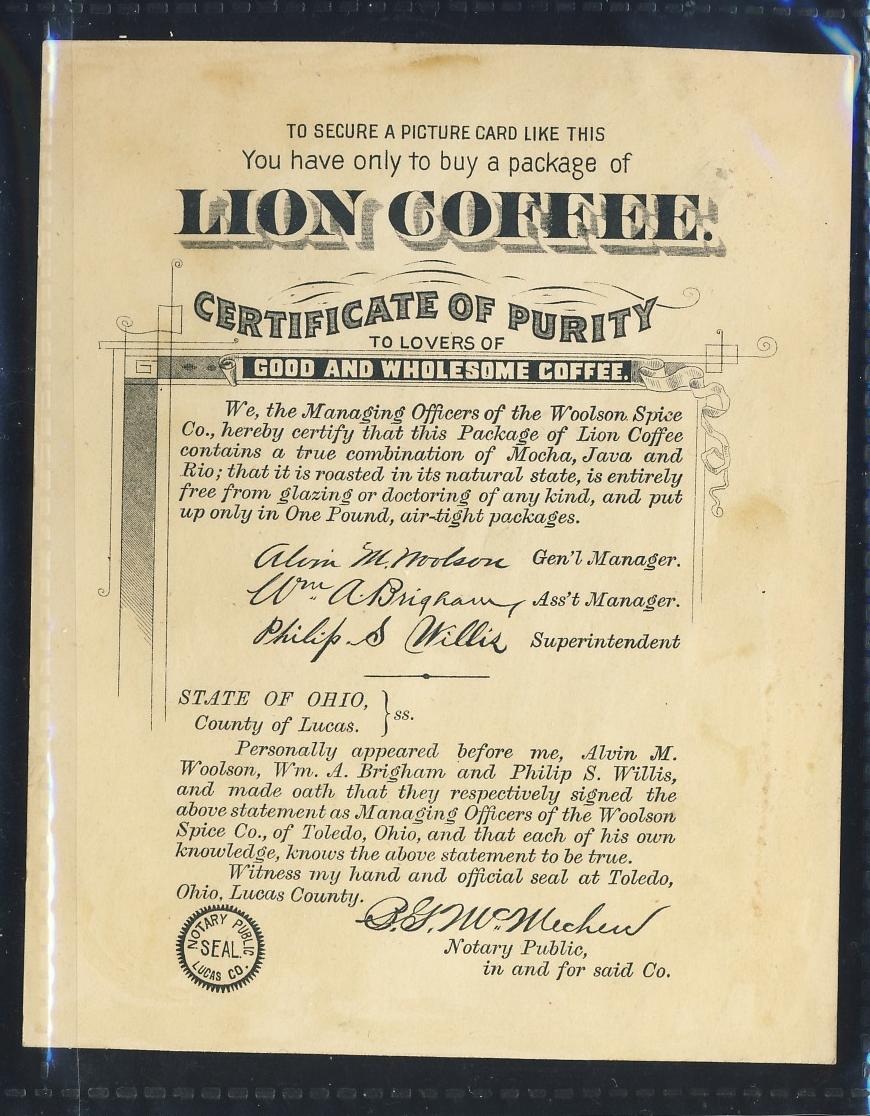 TO SECURE A PICTURE CARD LIKE THIS
You have only to buy a package of
LION COFFEE.
CERTIFICATE OF PURITY
TO LOVERS OF
GOOD AND WHOLESOME COFFEE.
We, the Managing Officers of the Woolson Spice
Co., hereby certify that this Package of Lion Coffee
contains a true combination of Mocha, Java and
Rio; that it is roasted in its natural state, is entirely
free from glazing or doctoring of any kind, and put
up only in One Pound, air-tight packages.
Alvin M. Woolson Gen'l Manager.
Wm. A. Brigham, Ass't Manager.
Philip S Willis Superintendent
STATE OF OHIO, } ss.
County of Lucas.
Personally appeared before me, Alvin M.
Woolson, Wm. A. Brigham and Philip S. Willis,
and made oath that they respectively signed the
above statement as Managing Officers of the Woolson
Spice Co., of Toledo, Ohio, and that each of his own
knowledge, knows the above statement to be true.
Witness my hand and official seal at Toledo,
Ohio, Lucas County.
B.G. McMechen
Notary Public,
in and for said Co.
NOTARY PUBLIC
SEAL.
LUCAS CO.